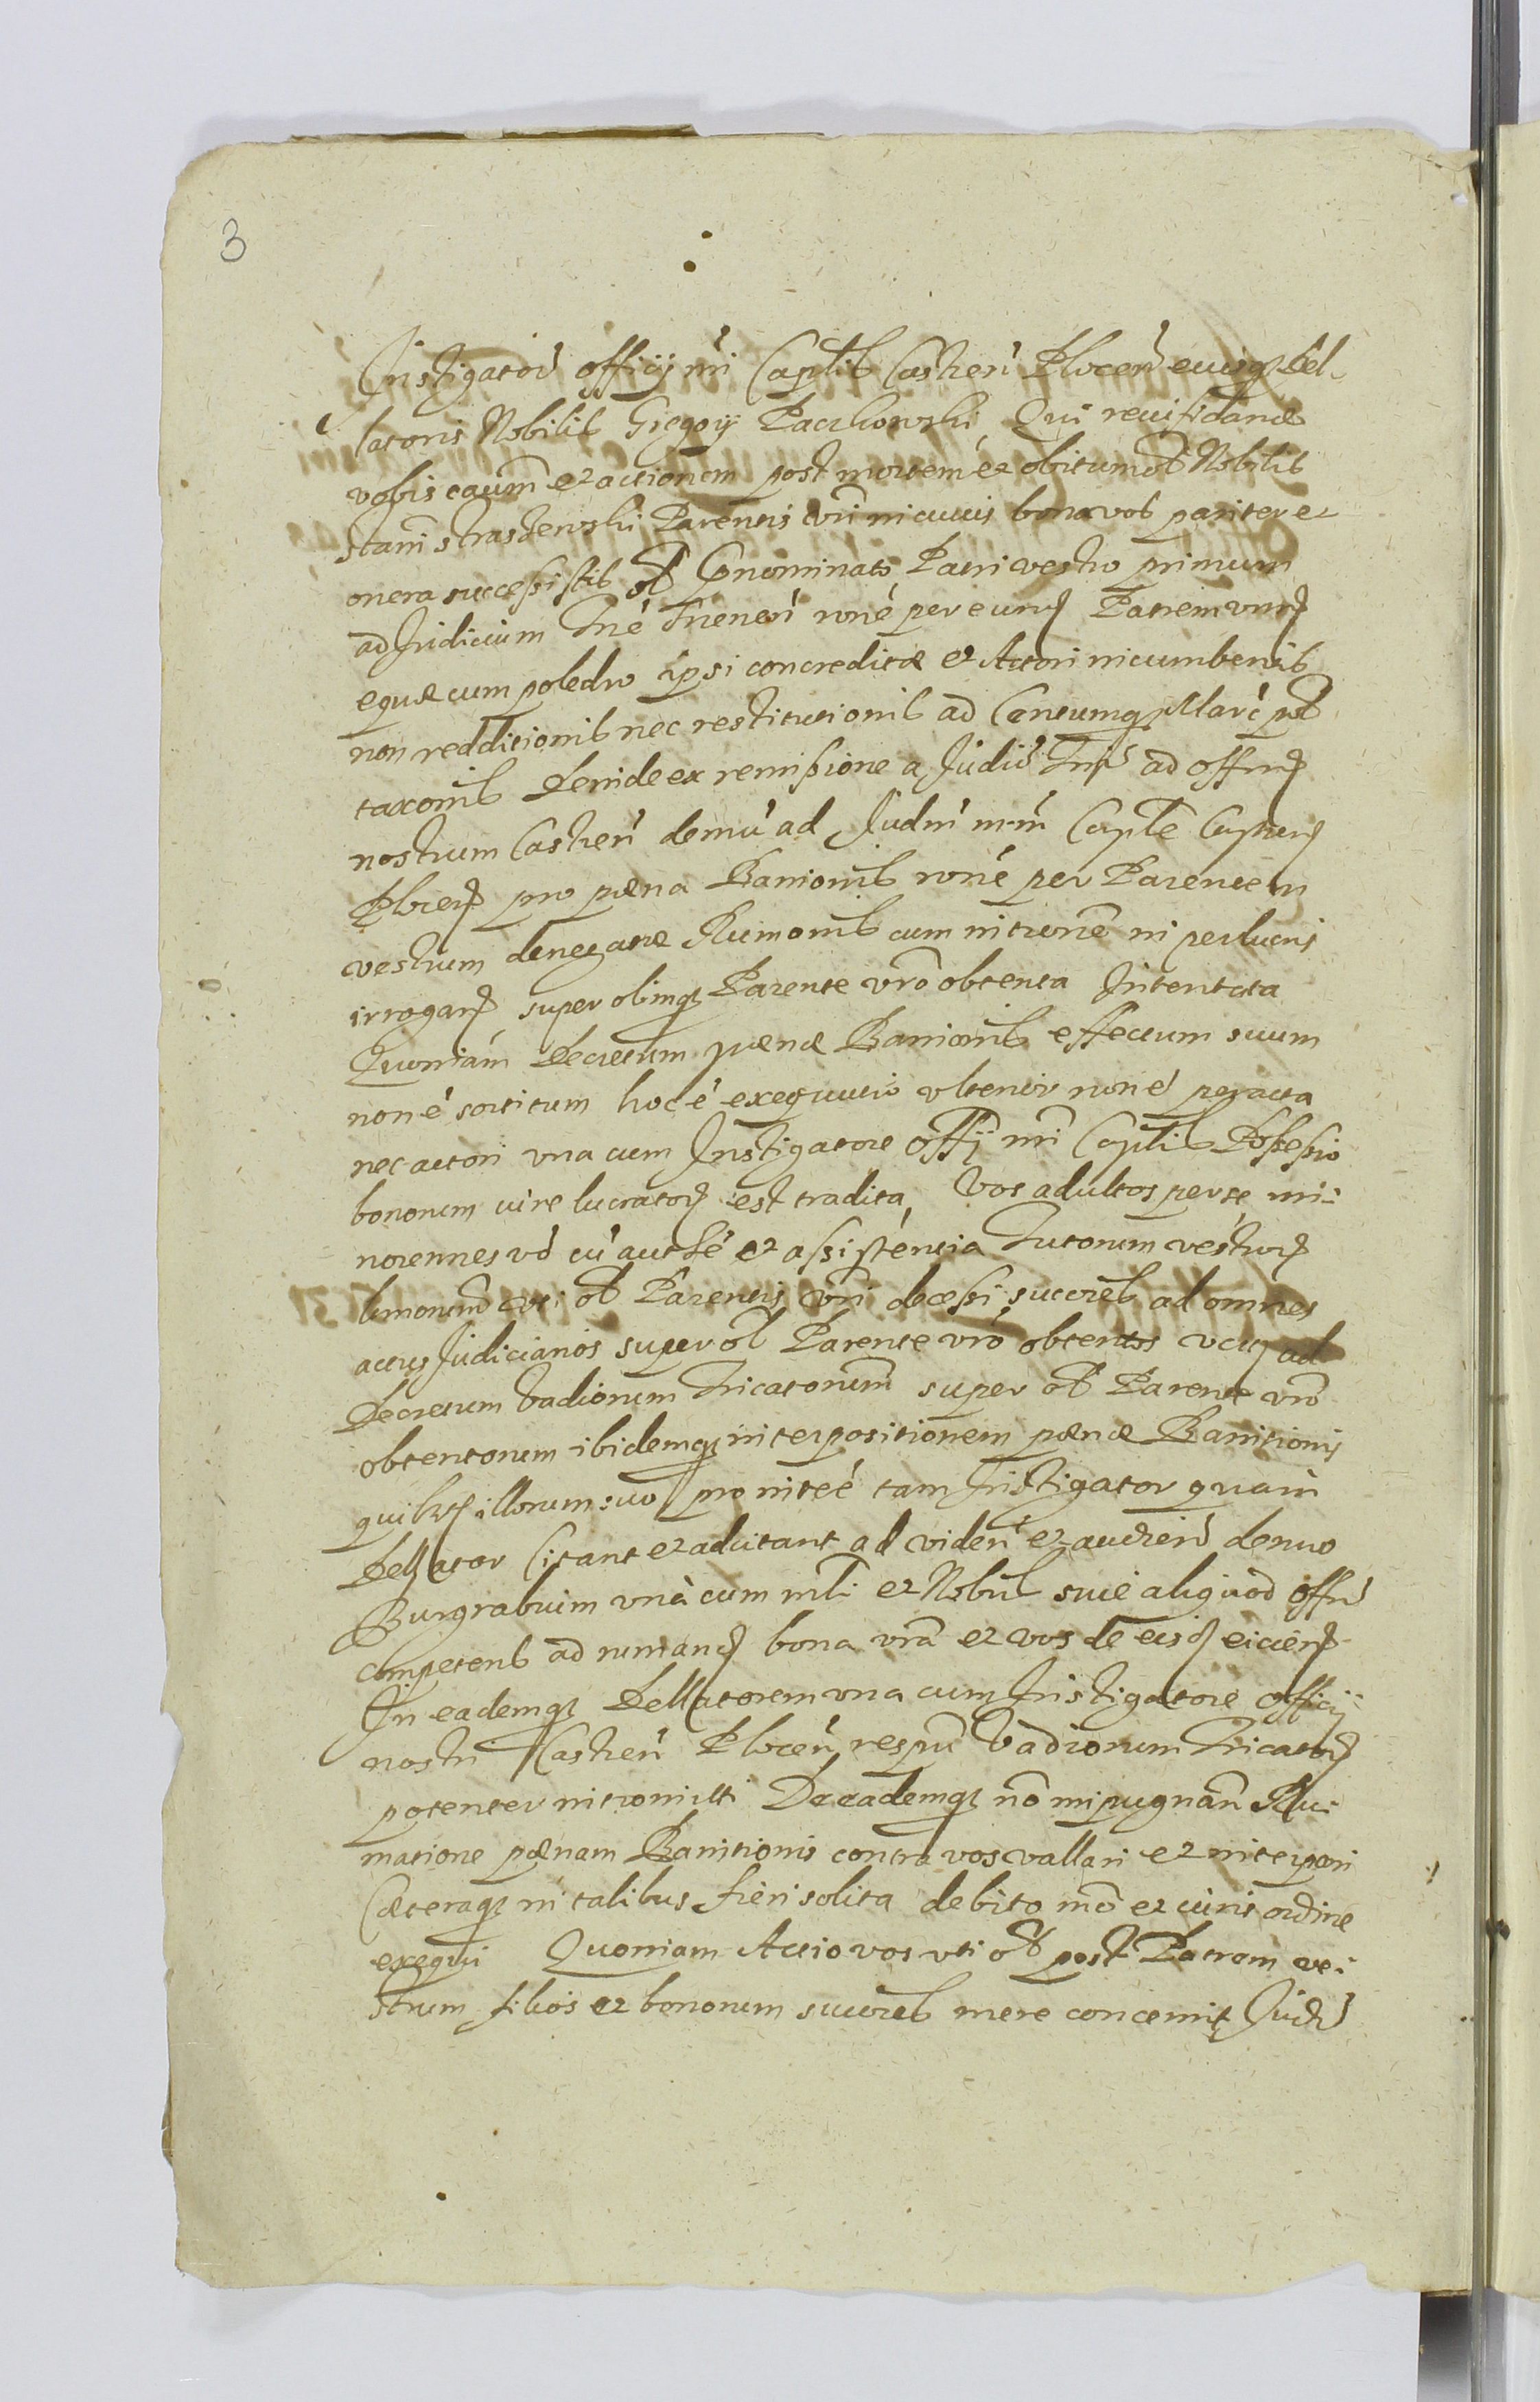 3
Instigatoris officij nri Captlis Castren Plocen euisq Del-
latoris Nobilis Gregorij Paczkowski Qui reuisidanda
vobis causm et actionem post mortem et obitum ol Nobilis
Stani Straszewski Parentis vri in cuuis bona vos pariter et
onera successistis ol Conominato Patri vestro primum
ad Judicium Tre Trenen rone per eund Patrem vrum
equæ cum poledro ipsi concreditæ et Actori incumbentis
non redditionis nec restitutionis ad Centumq Marc pol
taxonis Deinde ex remissione a Judio Trri ad offm
nostrum Castren demu ad Judm nrm Captle Capturs
Plocen pro pæna Banionis rone per Parentem
vestrum denegatæ Rumonis cum intione in perlucris
irrogand super olimq Parente vro obtenta Intentata
Quoniam Decretum pænæ Banionis effectum suum
non e sortitum hoc e exequutio vlterior non e peracta
nec actori vna cum Instigatore offij nri Captlis Possessio
bonorum iure lucrator est tradita Vos adultos per se mi-
norennes vo cu aucte et assistentia Tutorum vestror
bmonum vti ol Parentis vri decessi succres ad omnes
actus Judiciarios super ol Parente vro obtentos vt ad
Decretum Vadiorum Tricatorum super ol Parente vro
obtentorum ibidemq interpositionem pænæ Banitionis
quibus illorum suo pro intee tam Instigator quam
Dellator Citant et adcitant ad viden et audien denuo
Burgrabium vna cum mli et Nobil siue aliquod offm
competens ad rumand bona vra et vos de eisd eiciend
In eademq Dellatorem vna cum Instigatore officij
nostri Castren Plocen respu Vadiorum Tricator
potenter intromitti De eademq no impugnan Ru-
matione pænam Banitionis contra vos vallari et interponi
Cæteraq in talibus fieri solita debito mo et iuris ordine
exequi Quoniam Actio vos vti ol post Patrem ve-
strum filios et bonorum succres mere concernit Judo